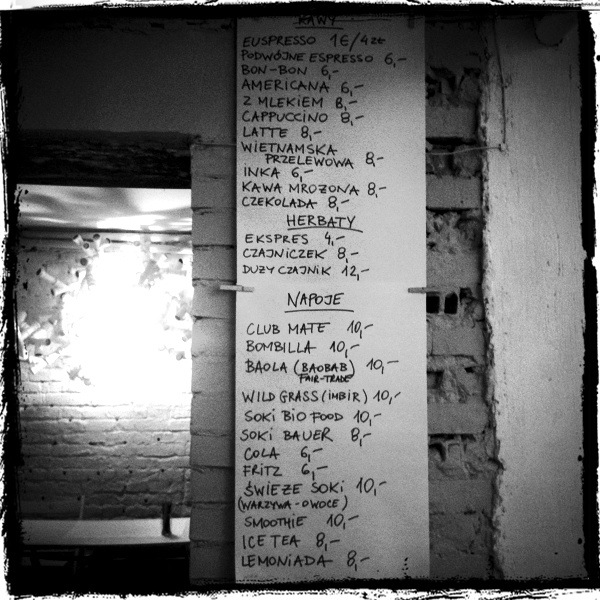 KAWY
EUSPRESSO 1€/4ZŁ
PODWÓJNE ESPRESSO 6,-
BON-BON 6,-
AMERICANA 6,-
Z MLEKIEM 8,-
CAPPUCCINO 8,-
LATTE 8,-
WIETNAMSKA
PRZELEWOWA 8,-
INKA 6,-
KAWA MROŻONA 8,-
CZEKOLADA 8,-
HERBATY
EKSPRES 4,-
CZAJNICZEK 8,-
DUŻY CZAJNIK 12,-
NAPOJE
CLUB MATE 10,-
BOMBILLA 10,-
BAOLA (BAOBAB) 10,-
FAIR-TRADE
WILD GRASS (IMBIR) 10,-
SOKI BIO FOOD 10,-
SOKI BAUER 8,-
COLA 6,-
FRITZ 6,-
ŚWIEŻE SOKI 10,-
(WARZYWA-OWOCE)
SMOOTHIE 10,-
ICE TEA 8,-
LEMONIADA 8,-